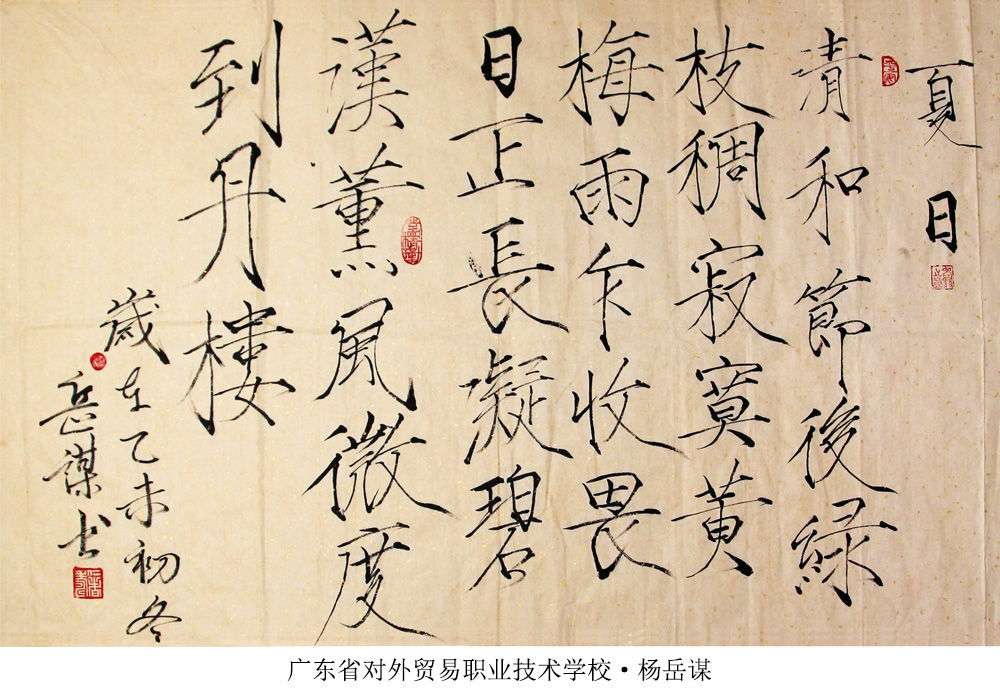 夏日
清和節後綠
枝稠寂寞黄
梅雨乍收畏
日正長凝碧
漢薰風微度
到丹樓
歲在乙未初冬
岳謀书
广东省对外贸易职业技术学校·杨岳谋